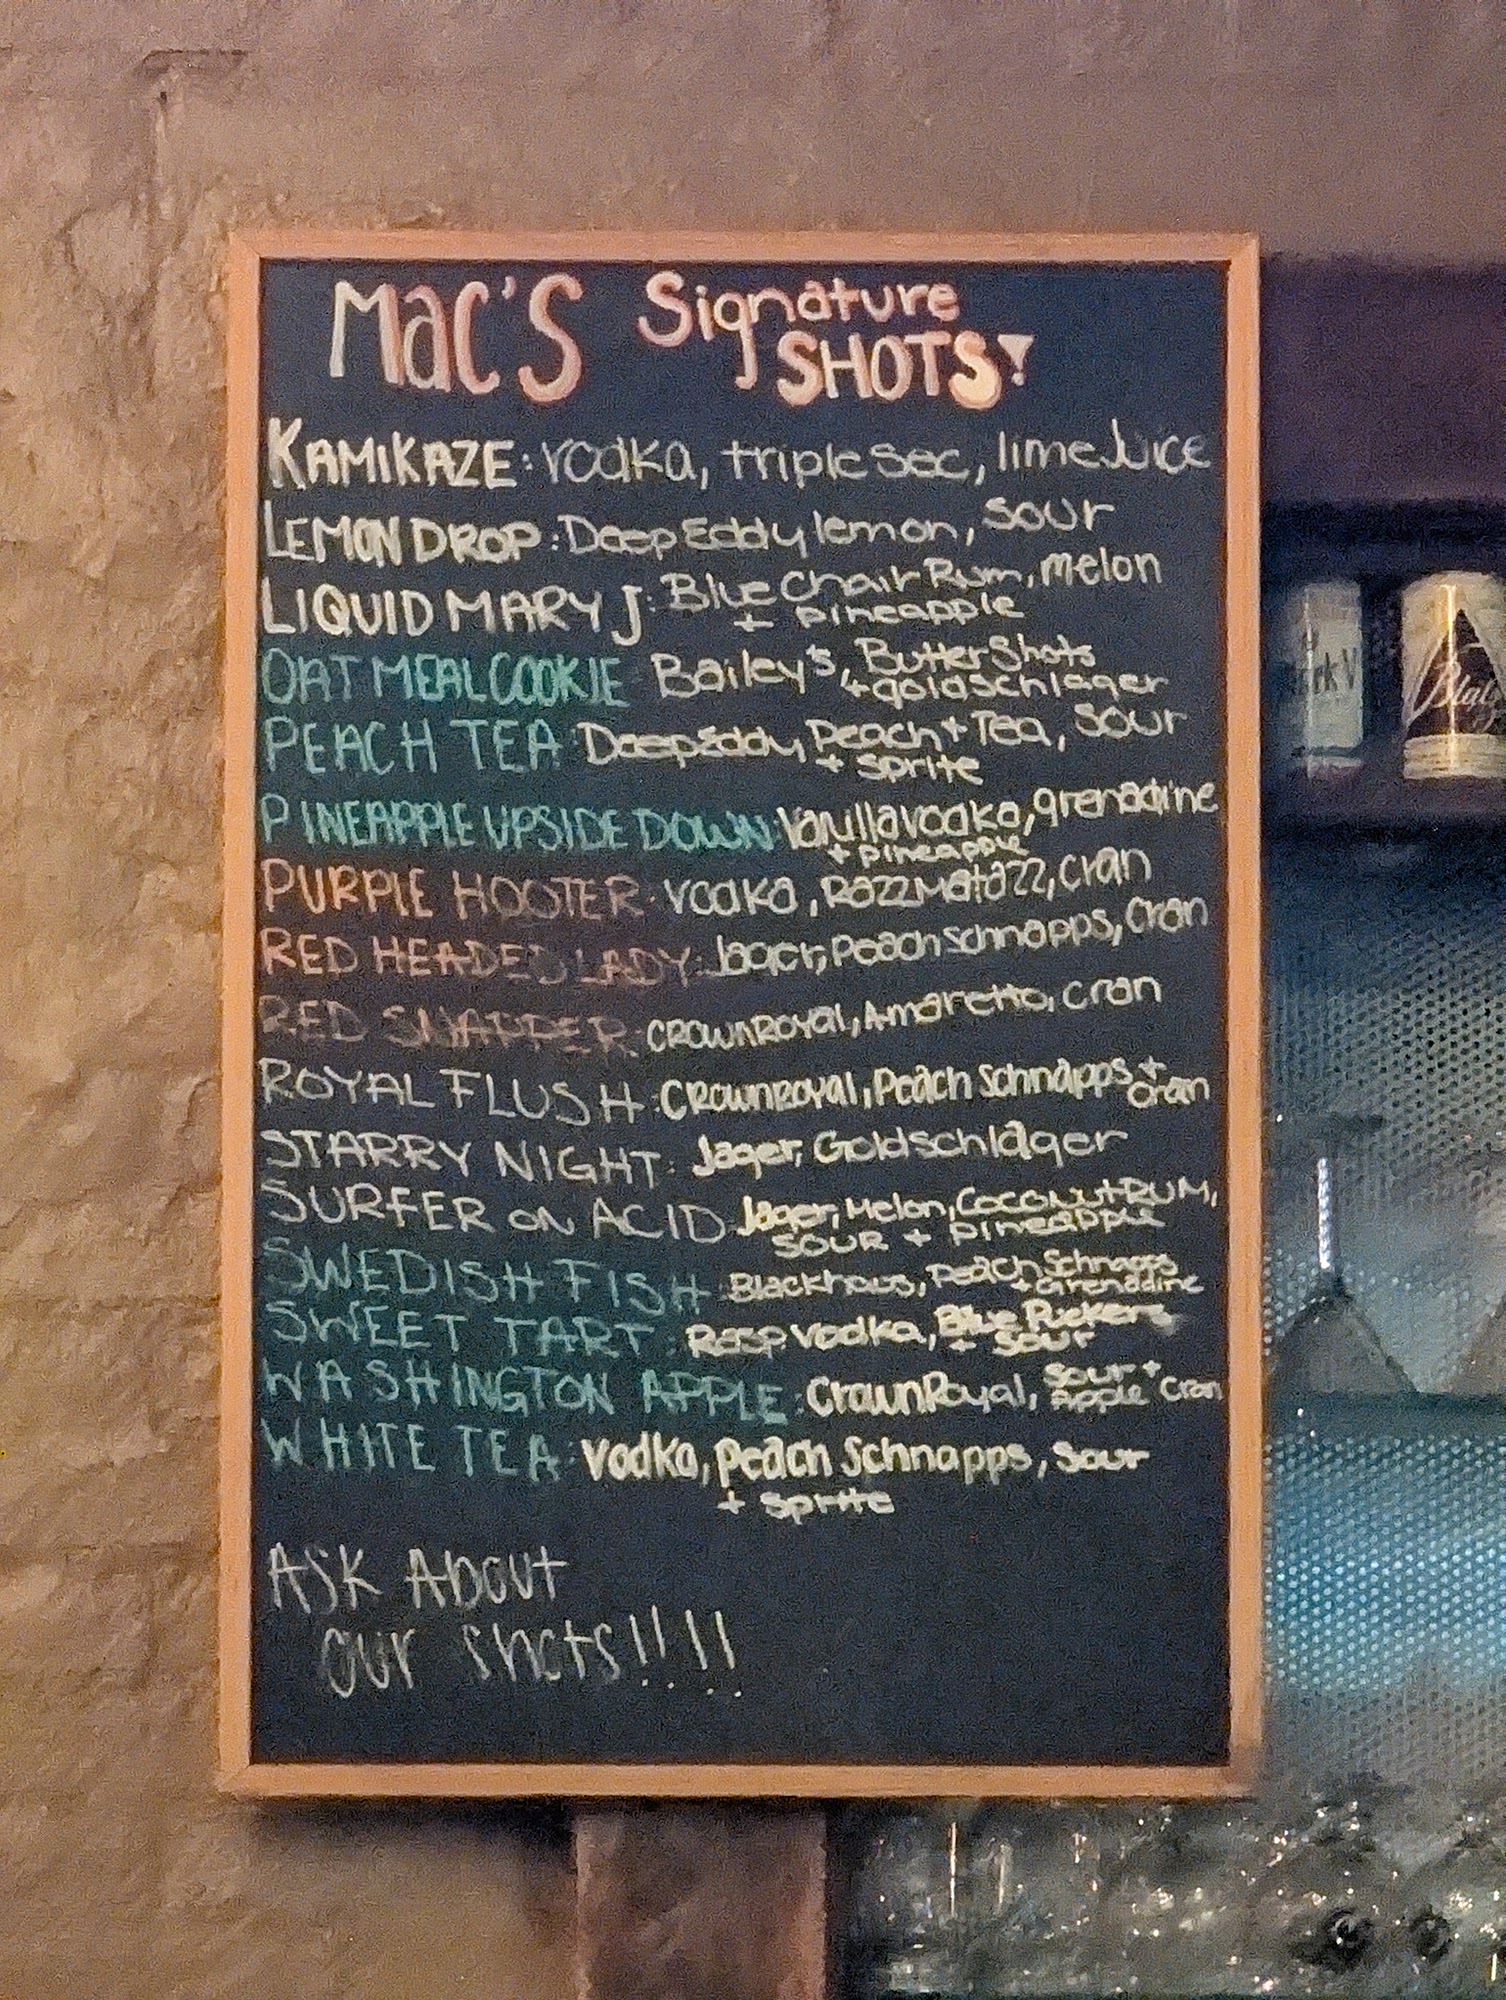 MAC'S Signature
SHOTS!
KAMIKAZE: vodka, triple sec, lime Juice
LEMON DROP: Deep Eddy lemon, sour
LIQUID MARY J: Blue Chair Rum, melon
+ pineapple
OATMEAL COOKIE Bailey's, ButterShots
+ goldschlager
PEACH TEA: Deep Eddy, Peach + Tea, sour
+ sprite
PINEAPPLE UPSIDE DOWN: Vanilla vodka, grenadine
+ pineapple
PURPLE HOOTER: vodka, RazzMatazz, cran
RED HEADED LADY: Jager, Peach schnapps, cran
RED SNAPPER: CROWN ROYAL, Amaretto, cran
ROYAL FLUSH: CROWN ROYAL, Peach Schnapps +
cran
STARRY NIGHT: Jager, Goldschlager
SURFER ON ACID: Jager, Melon, COCONUT RUM,
SOUR + pineapple
SWEDISH FISH: Blackhaus, Peach Schnapps
+ Grenadine
SWEET TART: Rasp Vodka, Blue Puckers
+ sour
WASHINGTON APPLE: Crown Royal, Sour +
Apple Cran
WHITE TEA: Vodka, Peach Schnapps, Sour
+ Sprite
ASK ABOUT
our shots!!!!